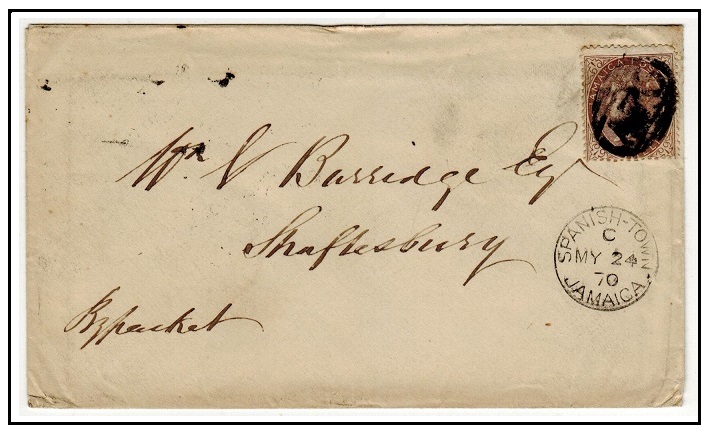 JAMAICA POS
Wm V Burridge Esq
Shaftesbury
By packet
SPANISH-TOWN
C
MY 24
70
JAMAICA